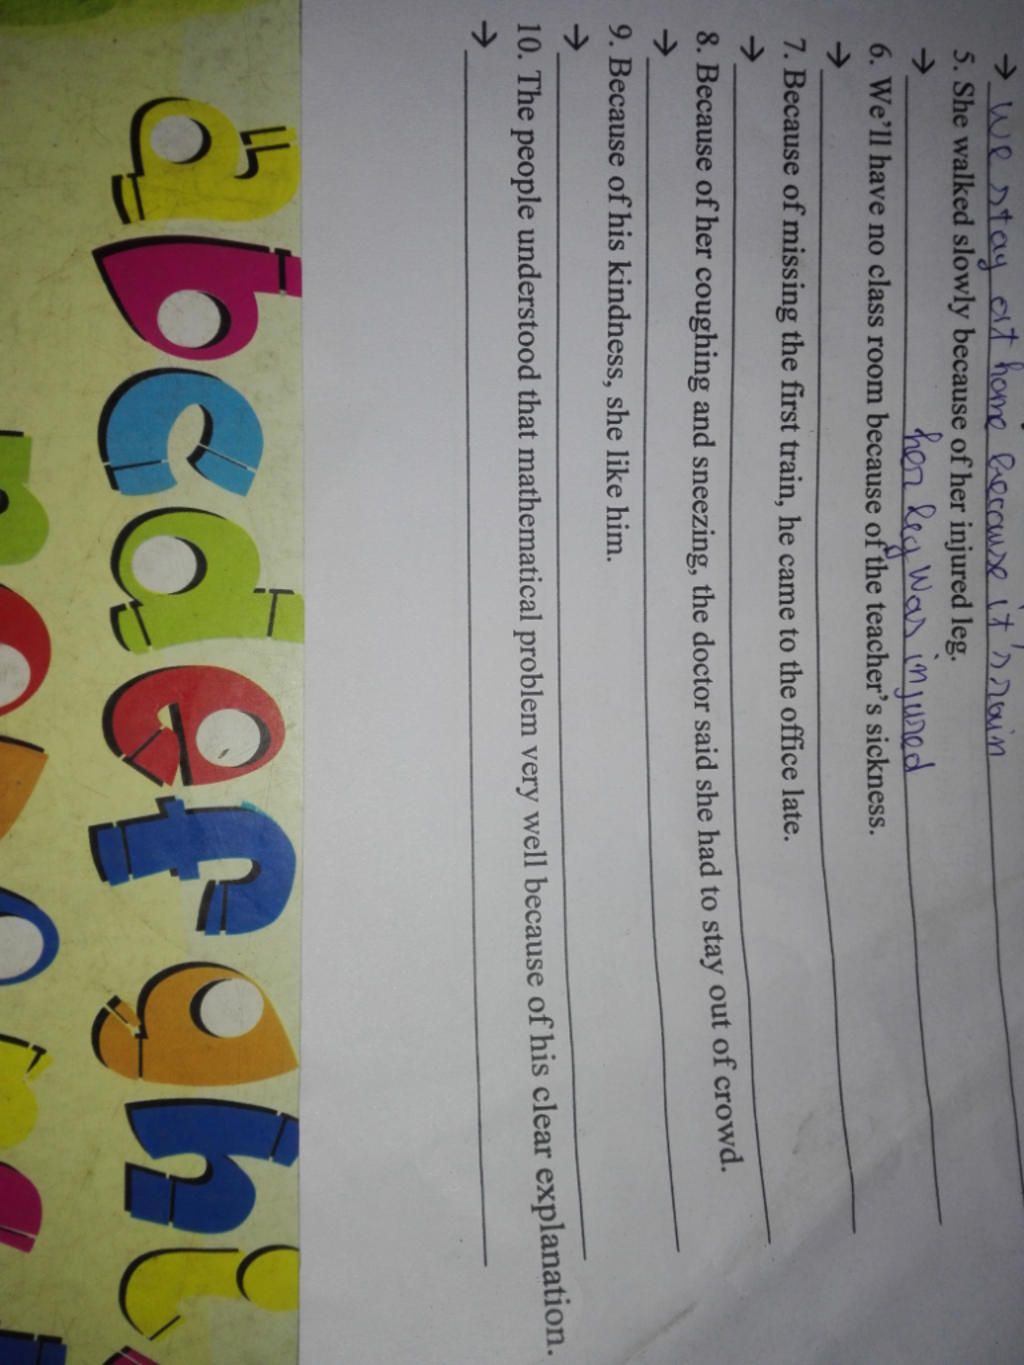 → We stay at home because it's rain
5. She walked slowly because of her injured leg.
→ her leg was injured
6. We'll have no class room because of the teacher's sickness.
→
7. Because of missing the first train, he came to the office late.
→
8. Because of her coughing and sneezing, the doctor said she had to stay out of crowd.
→
9. Because of his kindness, she like him.
→
10. The people understood that mathematical problem very well because of his clear explanation.
→
a b c d e f g h i